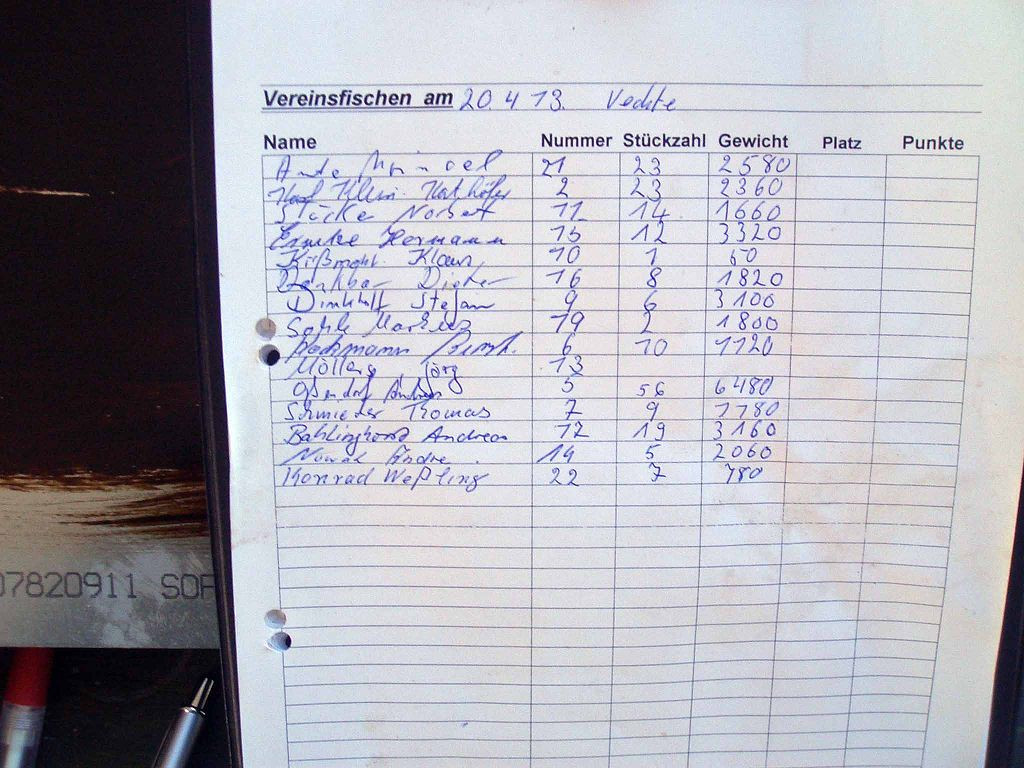 Vereinsfischen am 20 4 13. Vechte
Name Nummer Stückzahl Gewicht Platz Punkte
21 23 2580
Klein 2 23 2360
Stücker Norbert 11 14 1660
Hermann 15 12 3320
Klaus 10 1 60
Dieter 16 8 1820
Dinkhoff Stefan 9 6 3100
Markus 19 2 1800
6 10 1120
Möllers, Jörg 13
5 56 6480
Schmieder Thomas 7 9 1180
Bahlinghorst Andreas 12 19 3160
Nowak Andre 14 5 2060
Konrad Weßling 22 7 780
07820911 SOF